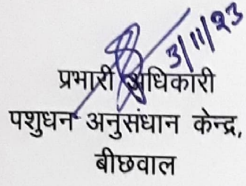 3/11/23
प्रभारी अधिकारी
पशुधन अनुसंधान केन्द्र,
बीछवाल